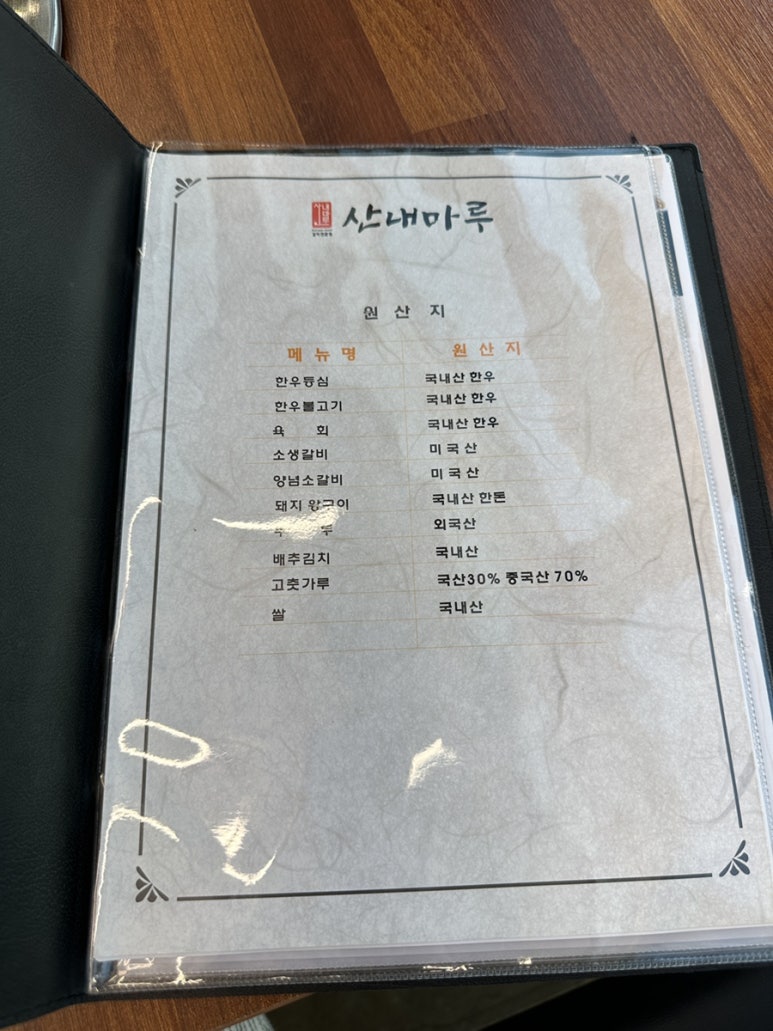 산내마루
원 산 지
메 뉴 명 원 산 지
한우등심 국내산 한우
한우불고기 국내산 한우
육 회 국내산 한우
소생갈비 미 국 산
양념소갈비 미 국 산
돼지 왕구이 국내산 한돈
외국산
배추김치 국내산
고춧가루 국산30% 중국산 70%
쌀 국내산